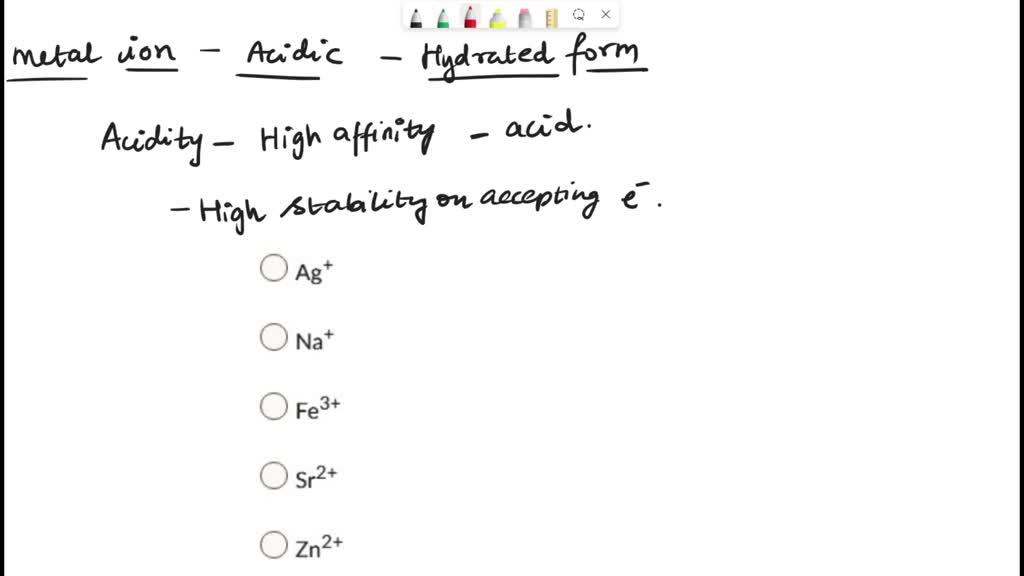 metal ion - Acidic - Hydrated form
Acidity - High affinity - acid.
- High stability on accepting e⁻.
Ag⁺
Na⁺
Fe³⁺
Sr²⁺
Zn²⁺